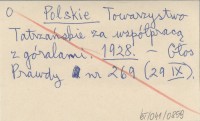 O Polskie Towarzystwo
Tatrzańskie za współpracą
z góralami. 1928. Głos
Prawdy nr 269 (29 IX).